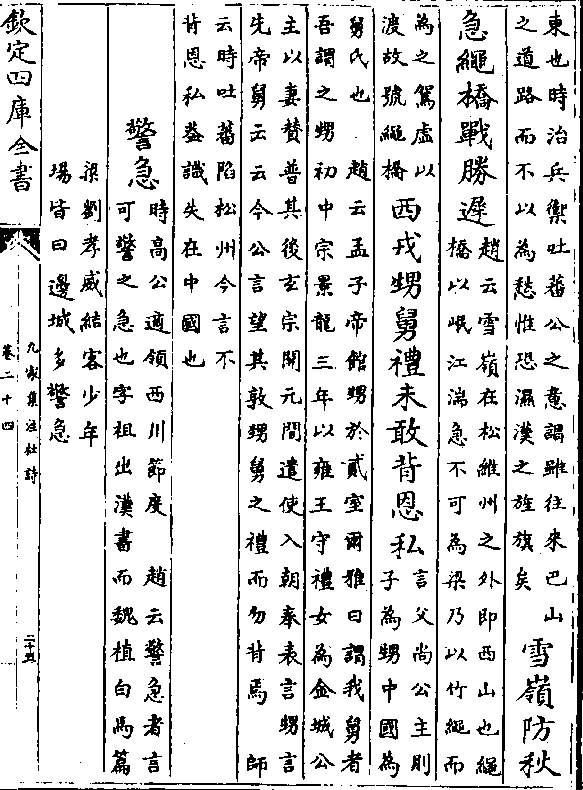 東也時治兵禦吐蕃公之意謂雖往來巴山
之道路而不以為愁惟恐濕漢之旌旗矣
雪嶺防秋
急繩橋戰勝遲
趙云雪嶺在松維州之外即西山也繩
橋以岷江湍急不可為梁乃以竹繩而
為之駕虛以
渡故號繩橋
西戎甥舅禮未敢背恩私
言父尚公主則
子為甥中國為
舅氏也 趙云孟子帝館甥於貳室爾雅曰謂我舅者
吾謂之甥初中宗景龍三年以雍王守禮女為金城公
主以妻贊普其後玄宗開元間遣使入朝奉表言甥言
先帝舅云云今公言望其敦甥舅之禮而勿背焉 師
云時吐蕃陷松州今言不
背恩私蓋譏失在中國也
警急
時高公適領西川節度 趙云警急者言
可警之急也字祖出漢書而魏植白馬篇
梁劉孝威結客少年
場皆曰邊城多警急
欽定四庫全書
九家集注杜詩
卷二十四
二十五